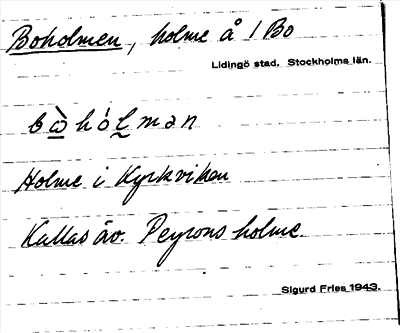 Boholmen, holme å / Bo
Lidingö stad, Stockholms län.
bò̲hól̰mən
Holme i Kyrkviken
Kallas äv. Peyrons holme
Sigurd Fries 1943.